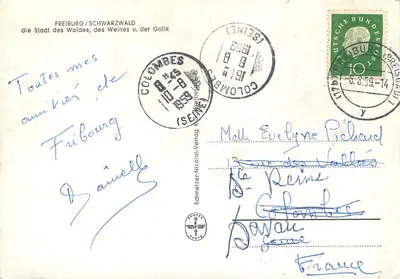 FREIBURG / SCHWARZWALD
die Stadt des Waldes, des Weines u. der Gotik
Toutes mes
amitiés de
Fribourg
COLOMBES
8 H45
10-8
1959
(SEINE)
COLOMBES
8-8
1959
(SEINE)
DEUTSCHE BUNDESPOST
10
-6.8.59.-14
y
Schmelzer-Nicolai-Verlag
Melle Evelyne Pichard
3 rue des Vallées
Ste Reine
Colombes
France